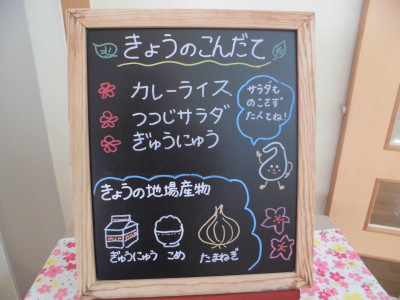 きょうのこんだて
カレーライス
つつじサラダ
ぎゅうにゅう
サラダも
のこさず
たべてね!
きょうの地場産物
ぎゅうにゅう
こめ
たまねぎ